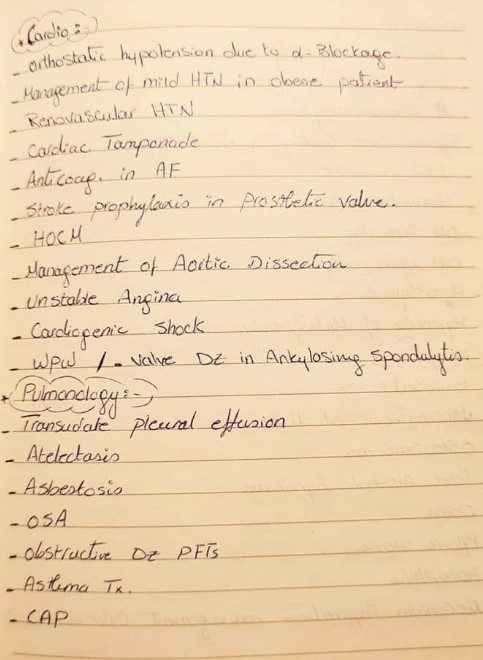 Cardio :-
- Orthostatic hypotension due to α-Blockage.
- Management of mild HTN in obese patient
- Renovascular HTN
- Cardiac Tamponade
- Anticoag. in AF
- Stroke prophylaxis in Prosthetic valve.
- HOCM
- Management of Aortic Dissection
- Unstable Angina
- Cardiogenic Shock
- WPW / - Valve DZ in Ankylosing Spondulytis.
* Pulmonology :-
- Transudate pleural effusion
- Atelectasis
- Asbestosis
- OSA
- Obstructive DZ PFTs
- Asthma Tx.
- CAP